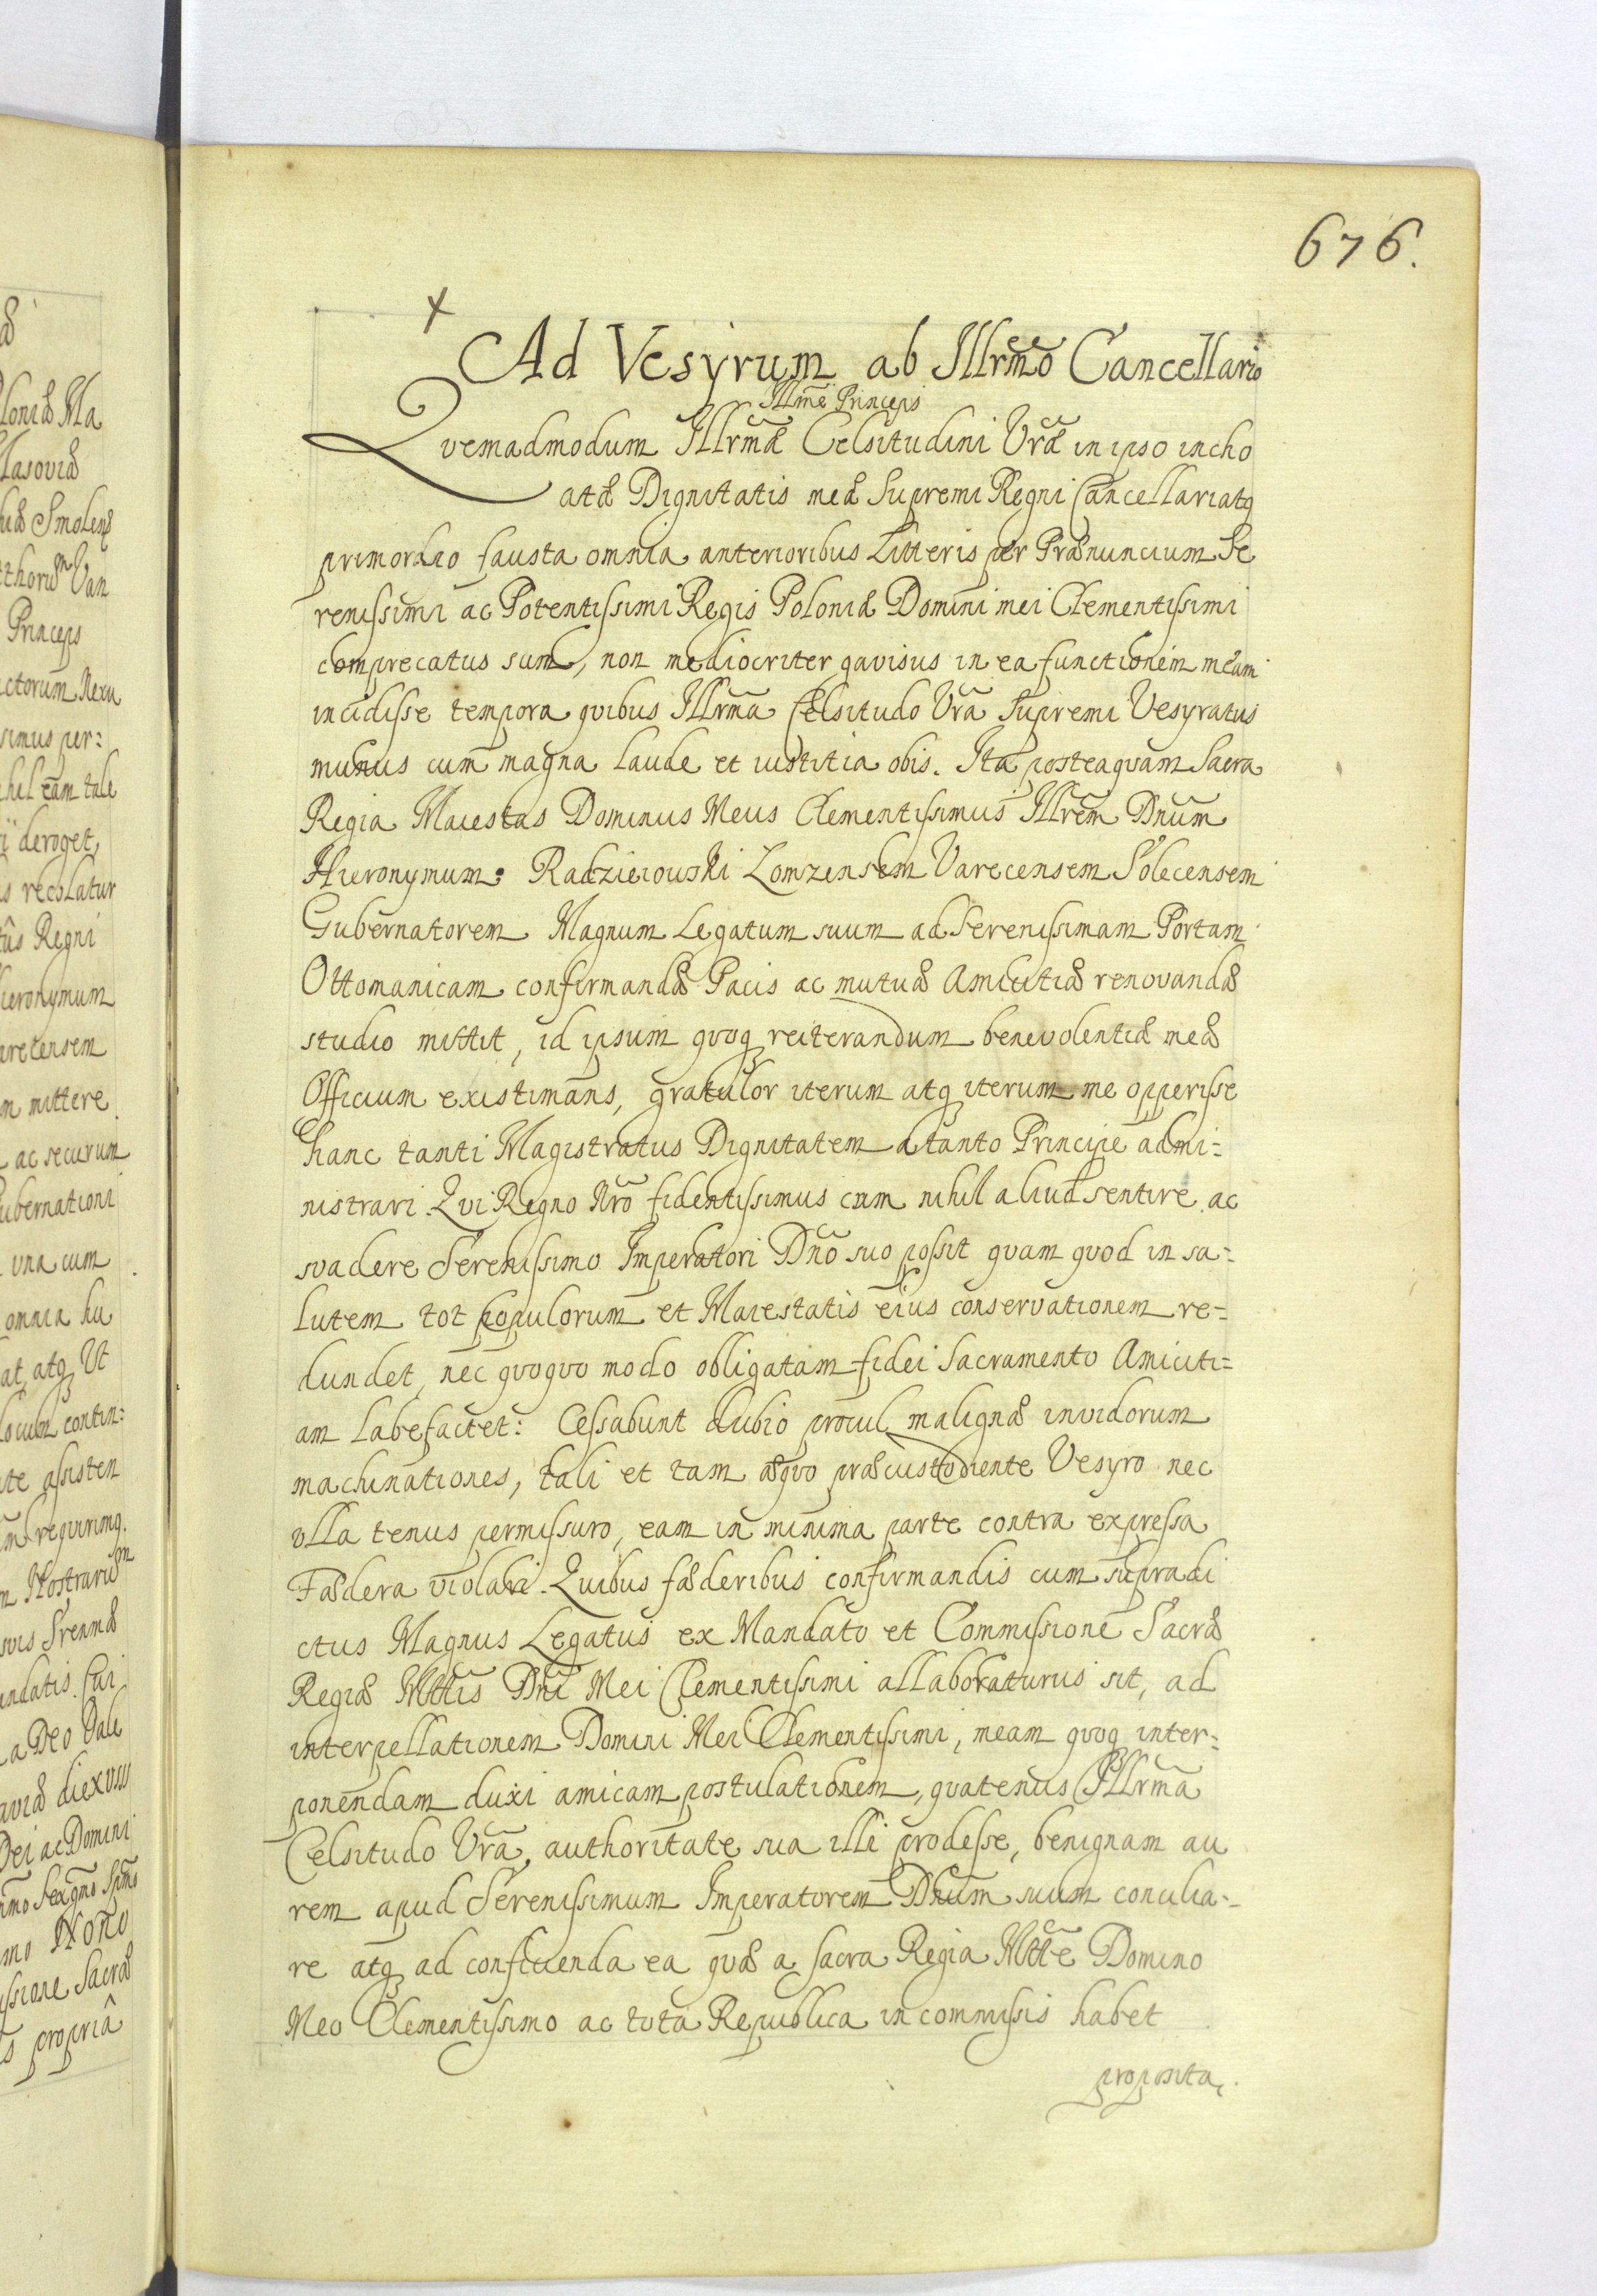 676.
Ad Vesyrum ab Illrmo Cancellario
Illme Princeps
Qvemadmodum Illrmæ Celsitudini Vræ in ipso incho
atæ Dignitatis meæ Supremi Regni Cancellariatq
primordio fausta omnia anterioribus Litteris per Prænuncium Se
renissimi ac Potentissimi Regis Poloniæ Domini mei Clementissimi
comprecatus sum, non mediocriter gavisus in ea functionem meam
incidisse tempora qvibus Illrma Celsitudo Vra Supremi Vesyratus
munus cum magna laude et iustitia obis. Ita posteaqvam Sacra
Regia Maiestas Dominus Meus Clementissimus Illrem Dnum
Hieronymum Radzieiowski Lomzensem Varecensem Solecensem
Gubernatorem Magnum Legatum suum ad Serenissimam Portam
Ottomanicam confirmandæ Pacis ac mutuæ Amicitiæ renovandæ
studio mittit, id ipsum qvoq reiterandum benevolentiæ meæ
Officium existimans, gratulor iterum atq iterum me opperisse
hanc tanti Magistratus Dignitatem a tanto Principe admi-
nistrari. Qvi Regno Nro fidentissimus cum nihil aliud sentire ac
svadere Serenissimo Imperatori Dno suo possit qvam qvod in sa-
lutem tot populorum et Maiestatis eius conservationem re-
dundet, nec qvoqvo modo obligatam fidei Sacramento Amiciti-
am labefactet: Cessabunt dubio procul malignæ invidorum
machinationes, tali et tam æqvo præcustodiente Vesyro nec
vlla tenus permissuro, eam in minima parte contra expressa
Fædera violari. Qvibus fæderibus confirmandis cum supradi
ctus Magnus Legatus ex Mandato et Commissione Sacræ
Regiæ Mttis Dni Mei Clementissimi allaboraturus sit, ad
interpellationem Domini Mei Clementissimi, meam qvoq inter-
ponendam duxi amicam postulationem, qvatenus Illrma
Celsitudo Vra, authoritate sua illi prodesse, benignam au
rem apud Serenissimum Imperatorem Dnum suum concilia-
re atq ad conficienda ea qvæ a Sacra Regia Mtte Domino
Meo Clementissimo ac tota Republica in commissis habet
proposita.